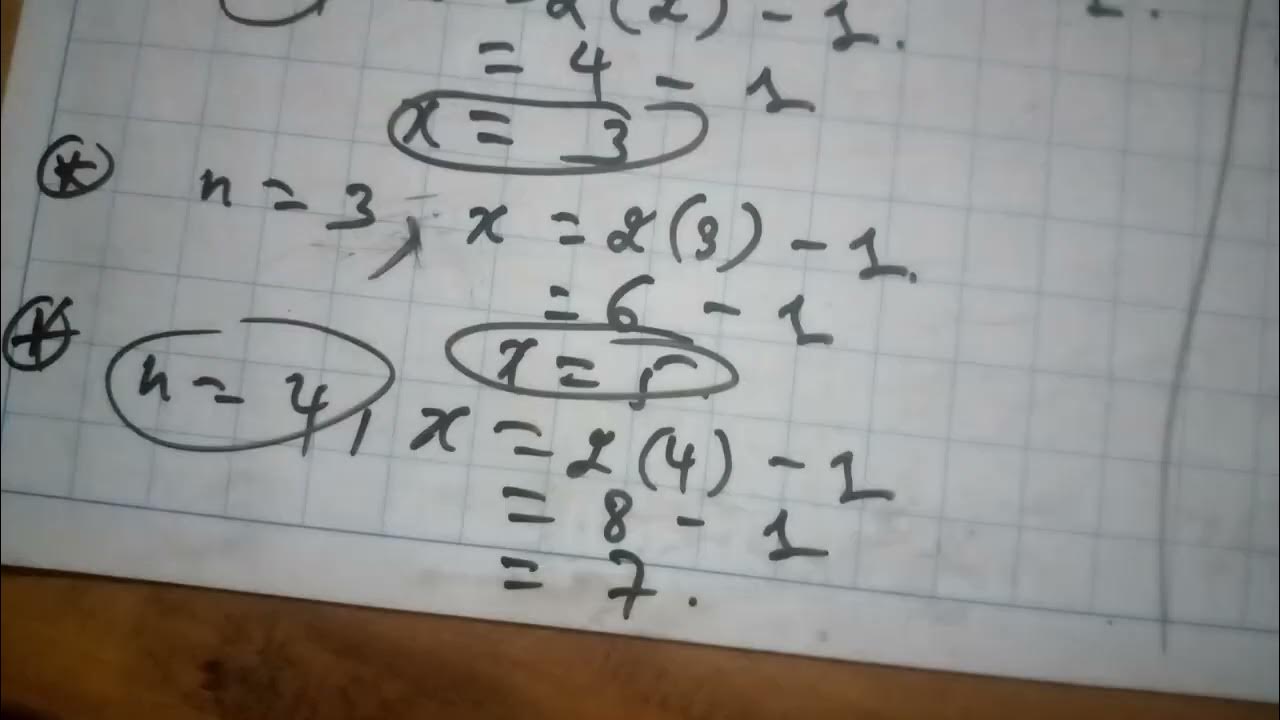 2(2) - 1.
= 4 - 1
x = 3
n = 3, x = 2(3) - 1.
= 6 - 1
x = 5
n = 4, x = 2(4) - 1
= 8 - 1
= 7.